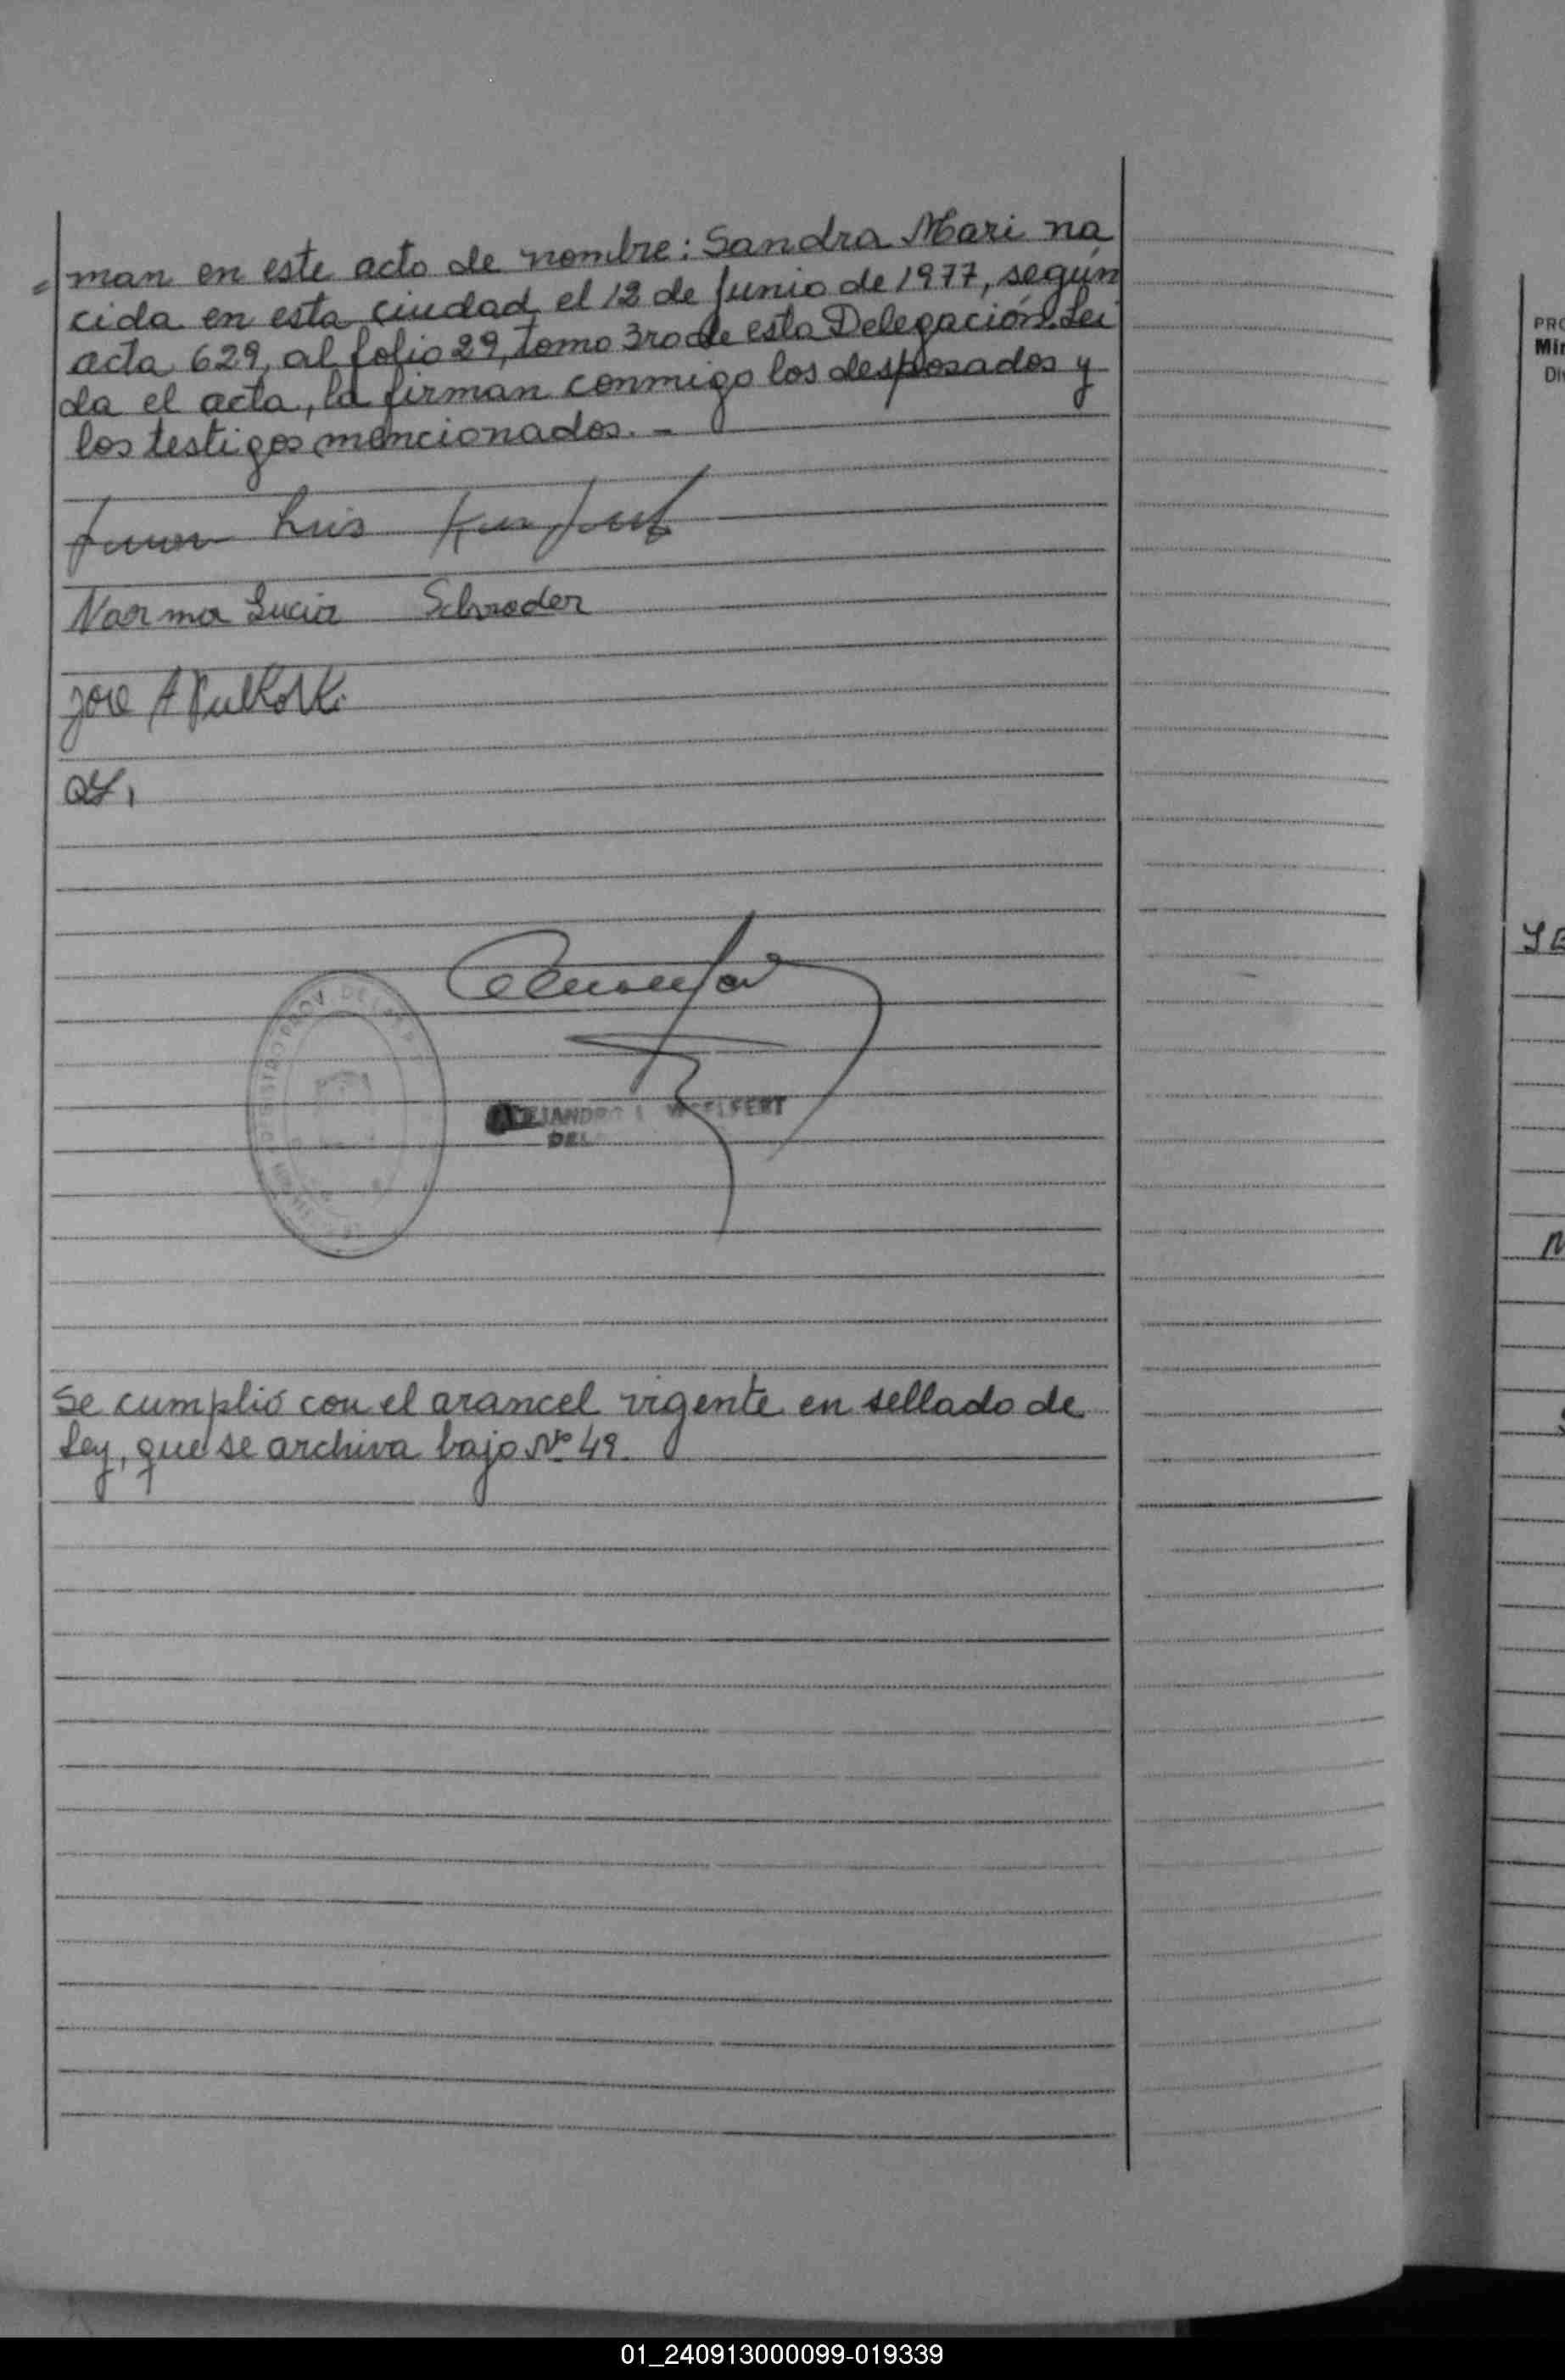 = man en este acto de nombre: Sandra Mari na
cida en esta ciudad el 12 de Junio de 1977, según
acta 629, al folio 29, tomo 3ro de esta Delegación. Leí
da el acta, la firman conmigo los desposados y
los testigos mencionados. -
Luis
Norma Lucia Schroder
Jose A
Se cumplió con el arancel vigente en sellado de
Ley, que se archiva bajo Nº 49.
PRO
Mir
01_240913000099-019339